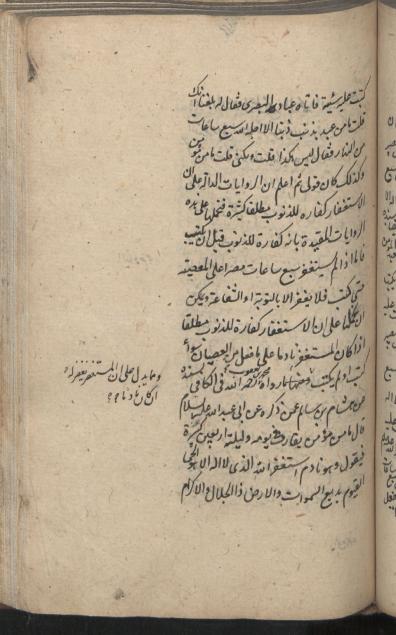 كتبت عليه سيئة فاتاه عباد البصرى فقال له بلغنا انك
قلت ما من عبد يذنب ذنبا الا اجله الله سبع ساعات
من النار فقال ليس هكذا قلت ولكنى قلت ما من مؤمن
وكذلك كان قولى ثم اعلم ان الروايات الدالة على ان
الاستغفار كفارة للذنوب مطلقا كثيرة فتحملها على هذه
الروايات المقيدة بانه كفارة للذنوب قبل ان تكتب
فاما اذا لم يستغفر سبع ساعات مصرا على المعصية
حتى كتبت فلا يغفر الا بالتوبة او الشفاعة ويمكن
ان على ان الاستغفار كفارة للذنوب مطلقا
اذا كان المستغفر نادما على ما فعل من العصيان سواء
كتب او لم يكتب ما رواه محمد بن يعقوب رحمه الله فى الكافى بسنده
عن هشام بن سالم عمن ذكره عن ابى عبد الله عليه السلام
قال ما من مؤمن يقارف فى يومه وليلته اربعين كبيرة
فيقول وهو نادم استغفر الله الذى لا اله الا هو الحى
القيوم بديع السموات والارض ذا الجلال والاكرام
وما يدل على ان المستغفر يغفر له
ان كان نادما